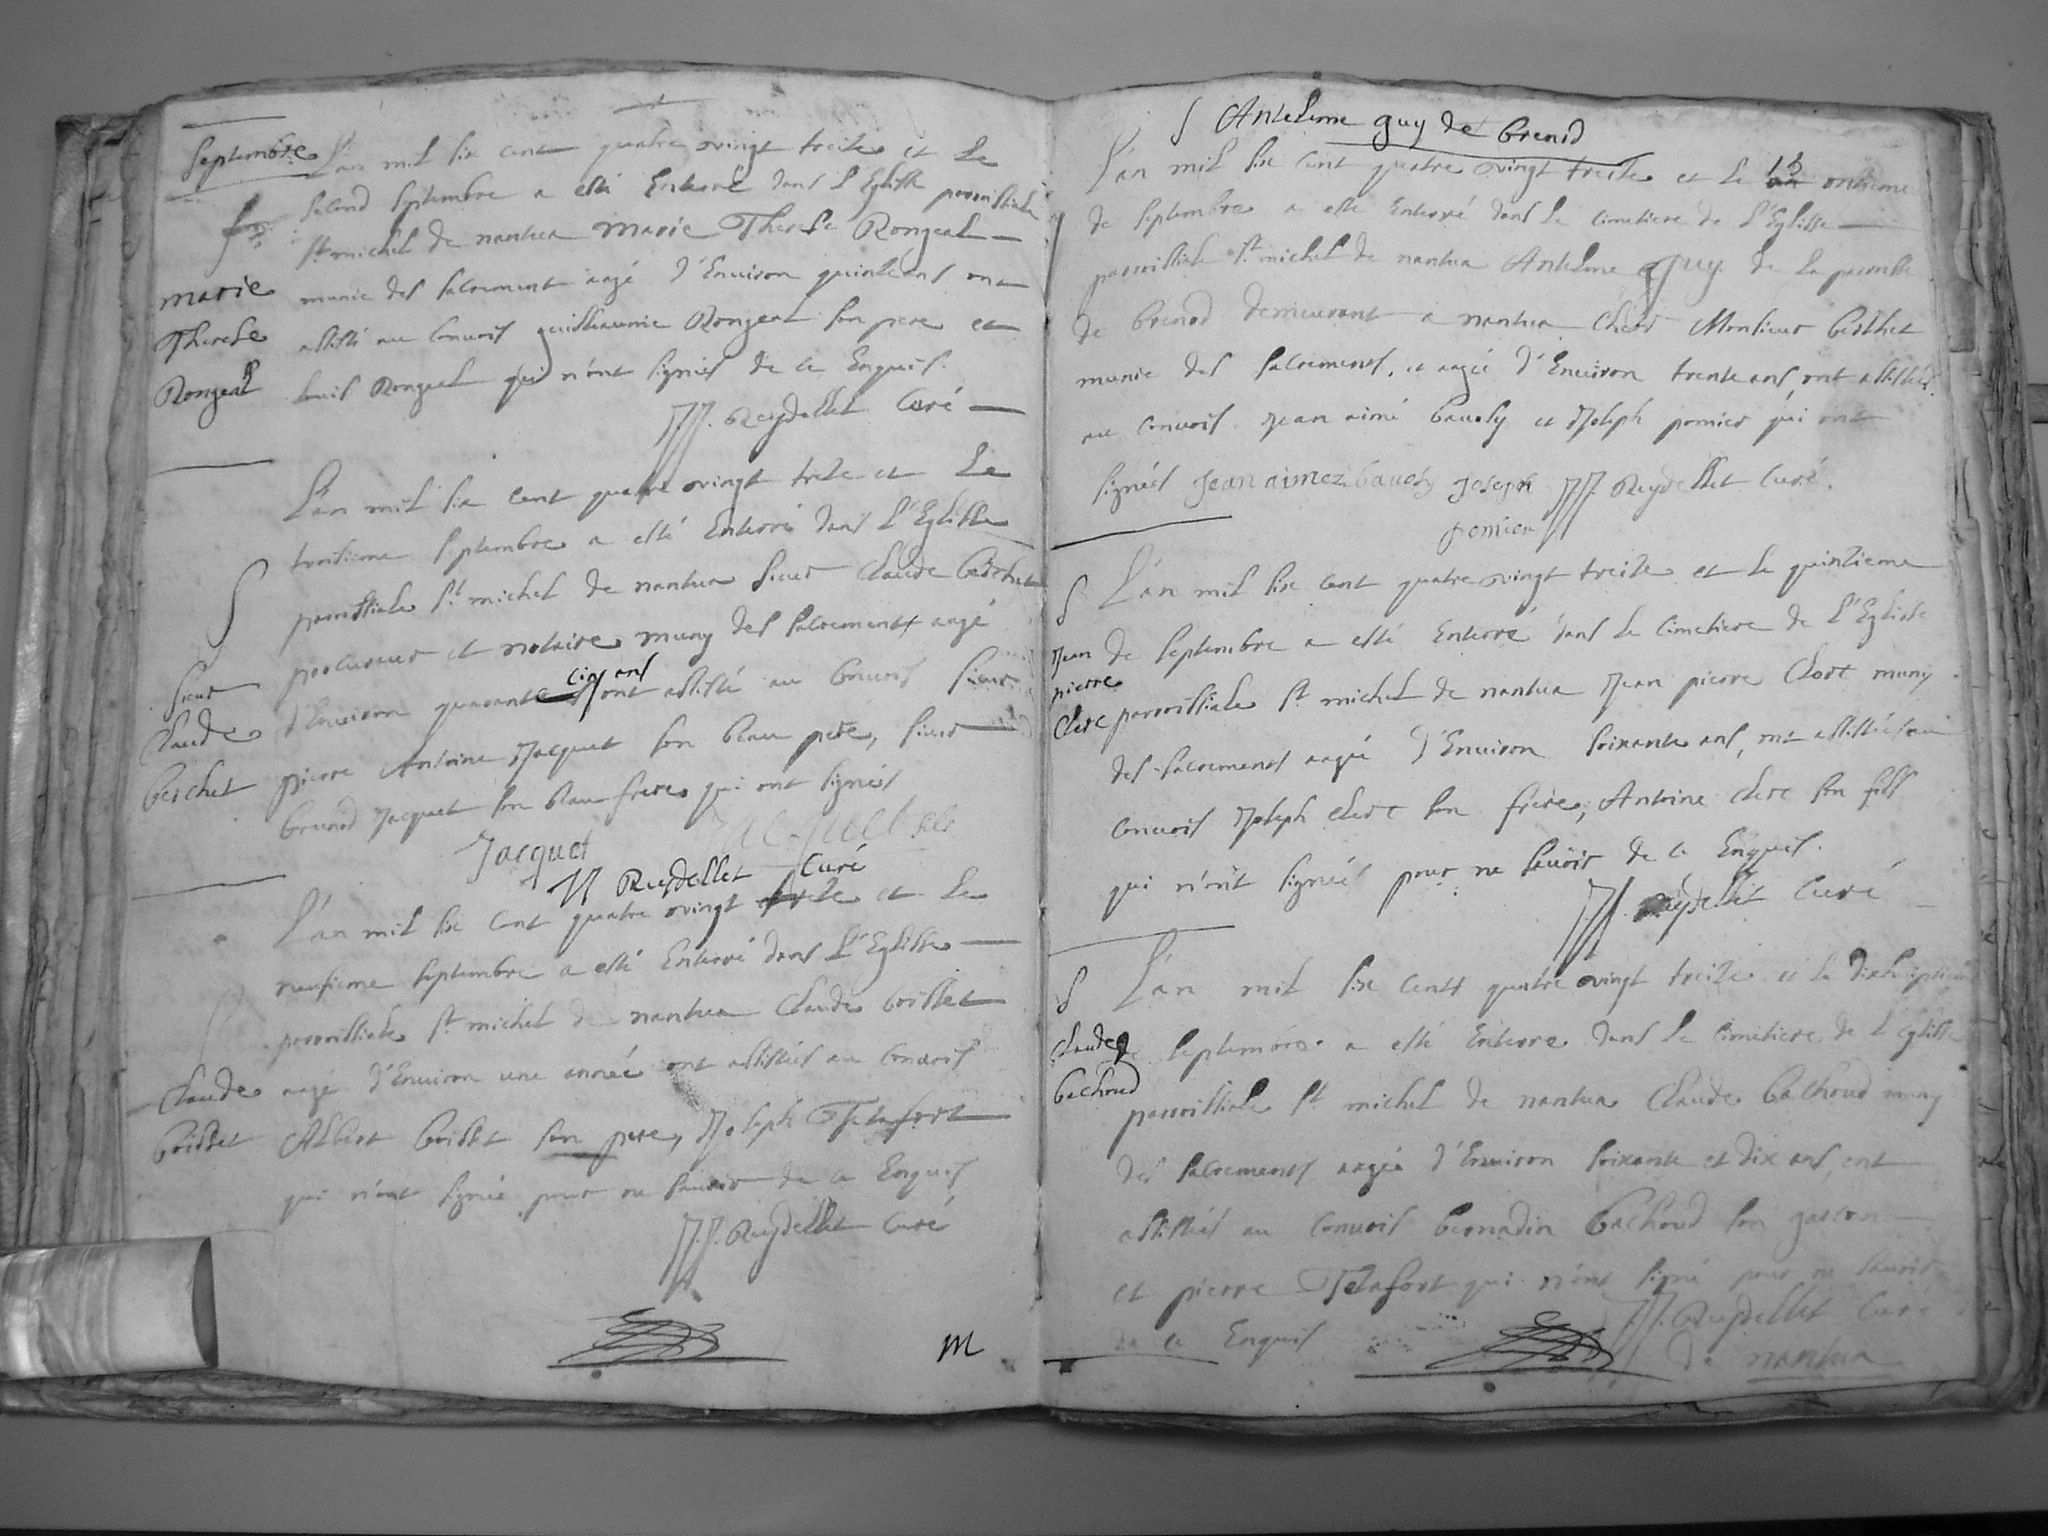 Septembre
L'an mil six cent quatre vingt treize et le
second septembre a esté Enterré dans l'Eglisse parroissiale
st michel de nantua Marie Therese Rongeat
munie des sacrement aagé d'Environ quinze ans ont
assisté au convois guilliaume Rongeat son pere et
Louis Rongeat qui n'ont signés de ce Enquis.
JJ. Reydellet Curé
marie
Therese
Rongeat
L'an mil six cent quatre vingt treze et le
troisieme septembre a esté Enterré dans L'Eglisse
parroissiale st michel de nantua sieur Claude Berchet
procureur et notaire muny des sacrements aagé
cinq ans
d'Environ quarante ont assisté au convois sieur
pierre Antoine Jacquet son beau pere, sieur
brunod Jacquet son beau frere qui ont signés
Jacquet Jacquet fils
JJ Reydellet Curé
sieur
Claude
berchet
L'an mil six cent quatre vingt treze et le
neufieme septembre a esté Enterré dans L'Eglisse
parroissiale st michel de nantua Claude boisset
aagé d'Environ une année ont assistés au convois
Albert boisset son pere, Joseph Tetafort
qui n'ont signé pour ne scavoir de ce Enquis
JJ. Reydellet Curé
Claude
boisset
m
Antelme guy de brenod
L'an mil six cent quatre vingt treize et le 13 onzieme
de septembre a esté Enterré dans le cimetiere de L'Eglisse
parroissiale st michel de nantua Antelme Guy de la parroisse
de brenod demeurant a nantua chez Monsieur berthet
munie des sacrements, et aagée d'Environ trente ans, ont assistés
au convois Jean aimé baudy et Joseph pomier qui ont
signés Jean aimez baudy Joseph JJ. Reydellet Curé.
pomier
L'an mil six cent quatre vingt treize et le quinzieme
de septembre a esté Enterré dans le cimetiere de L'Eglisse
parroissiale st michel de nantua Jean pierre Clerc muny
des sacrements aagée d'Environ soixante ans, ont assistés au
convois Joseph clerc son frere, Antoine clerc son fils
qui n'ont signés pour ne scavoir de ce Enquis.
JJ. Reydellet Curé
Jean
pierre
Clerc
L'an mil six cent quatre vingt treize et le dixseptieme
de septembre a esté Enterre dans le cimetiere de L'Eglisse
parroissiale st michel de nantua Claude bachoud muny
des sacrements aagée d'Environ soixante et dix ans, ont
assistés au convois bernadin bachoud son garcon
et pierre Tetafort qui n'ont signé pour ne scavoir
de ce Enquis JJ. Reydellet Curé
de nantua
Claude
bachoud